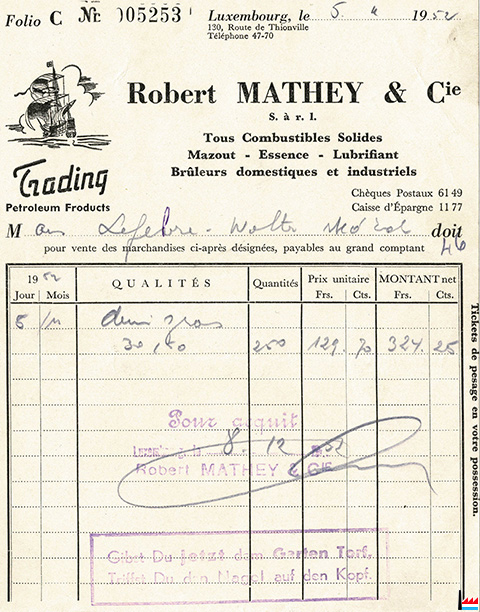 Folio C Nr. 005253 Luxembourg, le 5 1952
130, Route de Thionville
Téléphone 47-70
Robert MATHEY & Cie
S. à r. l.
Tous Combustibles Solides
Mazout - Essence - Lubrifiant
Brûleurs domestiques et industriels
Trading
Petroleum Froducts
Chèques Postaux 61 49
Caisse d'Épargne 11 77
M Lefebre - doit
pour vente des marchandises ci-après désignées, payables au grand comptant 46
1952 QUALITÉS Quantités Prix unitaire MONTANT net
Jour Mois Frs. Cts. Frs. Cts.
5 demi gras
250 129. 70 324. 25
Tickets de pesage en votre possession.
Pour acquit
8. 12 52
Robert MATHEY & CIE
Gibst Du jetzt dem Garten Torf,
Triffst Du den Nagel auf den Kopf.